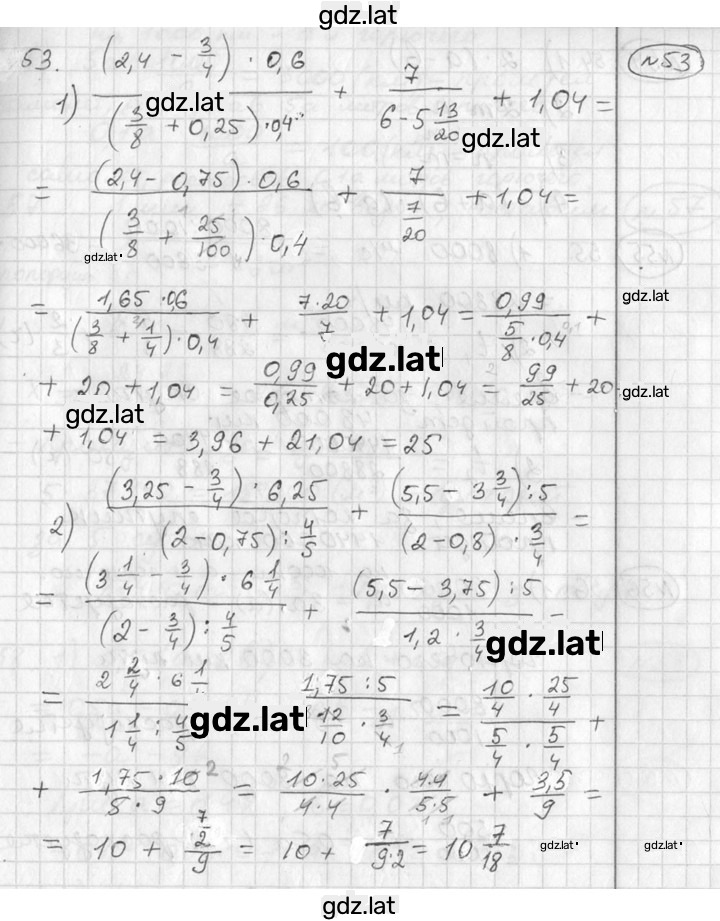 gdz.lat
53. №53
1) ((2,4 - 3/4) · 0,6)/((3/8 + 0,25) · 0,4) + 7/(6 - 5 13/20) + 1,04 =
gdz.lat gdz.lat
= ((2,4 - 0,75) · 0,6)/((3/8 + 25/100) · 0,4) + 7/(7/20) + 1,04 =
gdz.lat
= (1,65 · 0,6)/((3/8 + 1/4) · 0,4) + (7·20)/7 + 1,04 = 0,99/(5/8 · 0,4) +
gdz.lat gdz.lat
+ 20 + 1,04 = 0,99/0,25 + 20 + 1,04 = 99/25 + 20
gdz.lat gdz.lat
+ 1,04 = 3,96 + 21,04 = 25
2) ((3,25 - 3/4) · 6,25)/((2 - 0,75) : 4/5) + ((5,5 - 3 3/4) : 5)/((2 - 0,8) · 3/4) =
= ((3 1/4 - 3/4) · 6 1/4)/((2 - 3/4) : 4/5) + ((5,5 - 3,75) : 5)/(1,2 · 3/4) =
gdz.lat
= (2 2/4 · 6 1/)/(1 1/4 : 4/5) (1,75 : 5)/(12/10 · 3/4) = (10/4 · 25/4)/(5/4 · 5/4) +
gdz.lat
+ (1,75 · 10)/(5 · 9) = (10·25)/(4·4) · (4·4)/(5·5) + 3,5/9 =
= 10 + (7/2)/9 = 10 + 7/(9·2) = 10 7/18
gdz.lat gdz.lat
gdz.lat